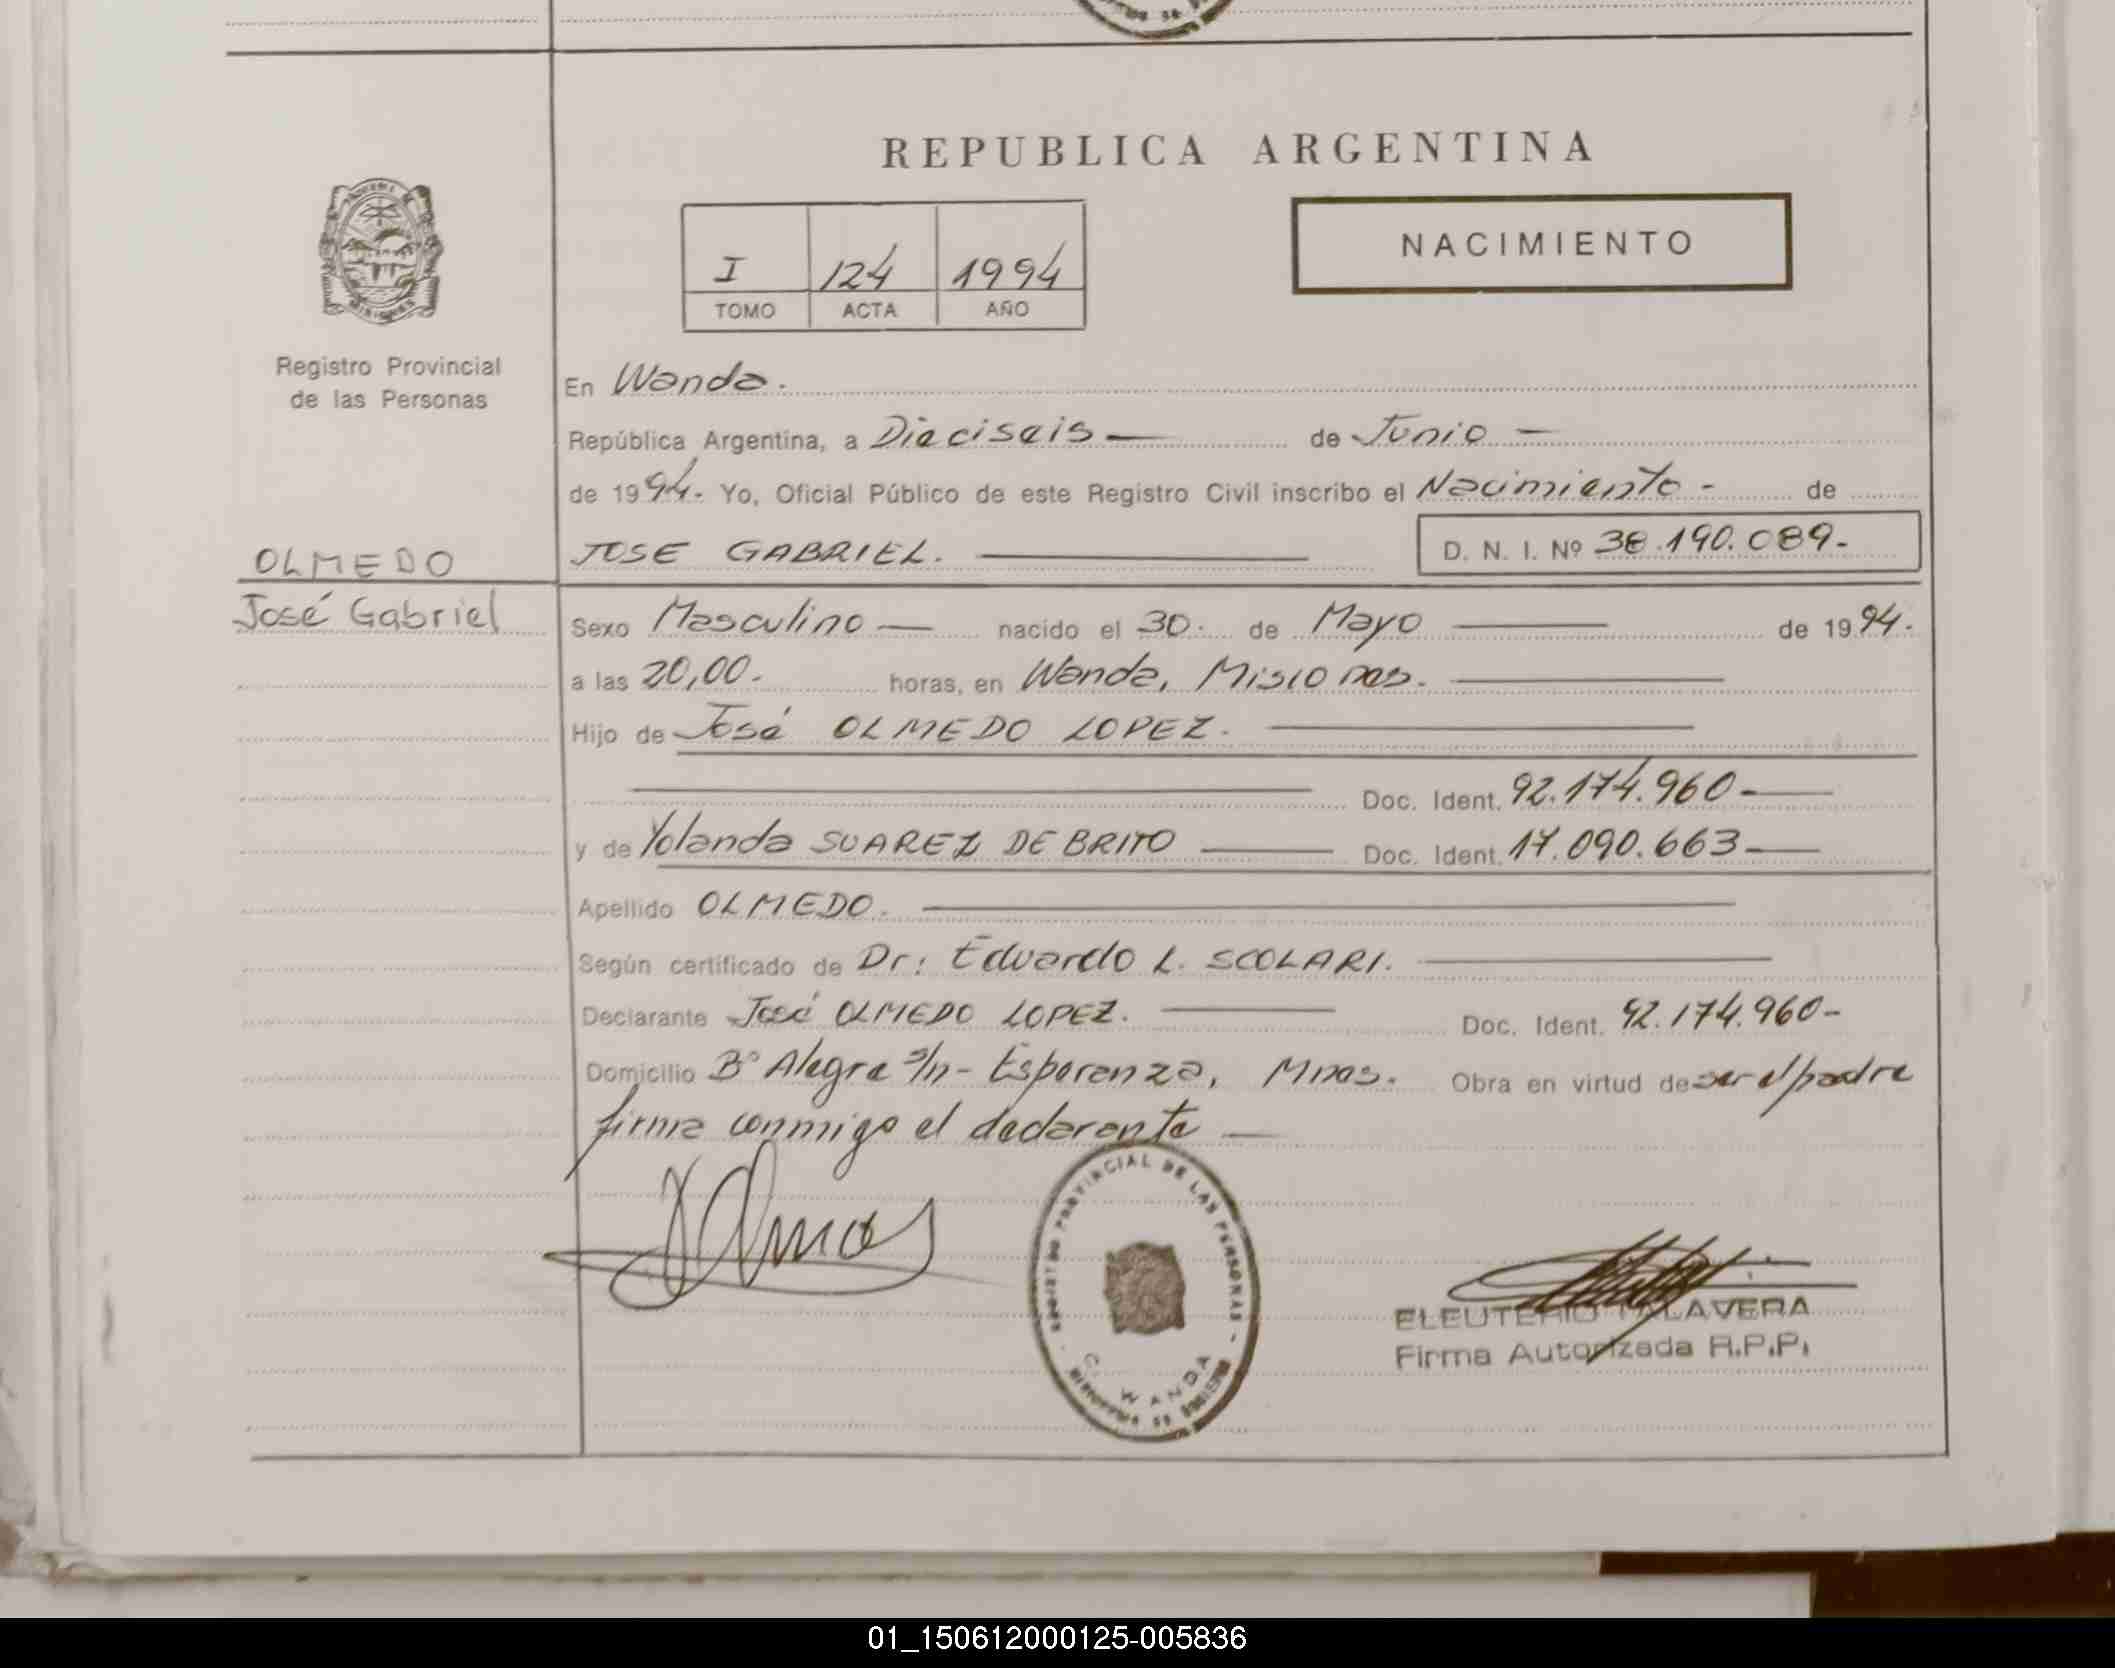 REPUBLICA ARGENTINA
NACIMIENTO
I 124 1994
TOMO ACTA AÑO
MISIONES
Registro Provincial
de las Personas
En Wanda.
República Argentina, a Dieciseis — de Junio —
de 1994. Yo, Oficial Público de este Registro Civil inscribo el Nacimiento - de
OLMEDO
José Gabriel
JOSE GABRIEL. D. N. I. Nº 38.190.089.-
Sexo Masculino — nacido el 30. de Mayo — de 1994.
a las 20,00. horas, en Wanda, Misiones.
Hijo de José OLMEDO LOPEZ.
Doc. Ident. 92.174.960-
y de Yolanda SUAREZ DE BRITO — Doc. Ident. 17.090.663-
Apellido OLMEDO.
Según certificado de Dr: Eduardo L. SCOLARI.
Declarante José OLMEDO LOPEZ. — Doc. Ident. 92.174.960-
Domicilio Bº Alegre s/n- Esperanza, Mnes. Obra en virtud de ser el padre
firma conmigo el declarante —
REGISTRO PROVINCIAL DE LAS PERSONAS
WANDA
ELEUTERIO TALAVERA
Firma Autorizada R.P.P.
01_150612000125-005836